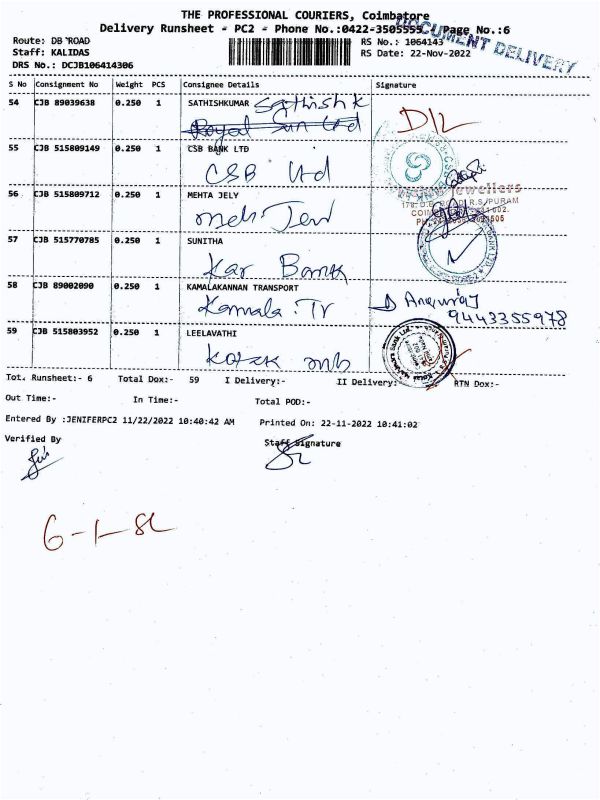 THE PROFESSIONAL COURIERS, Coimbatore
Delivery Runsheet - PC2 - Phone No.:0422-3505555 Page No.:6
DOCUMENT DELIVERY
Route: DB ROAD RS No.: 1064143
Staff: KALIDAS RS Date: 22-Nov-2022
DRS No.: DCJB106414306
S No Consignment No Weight PCS Consignee Details Signature
54 CJB 89039638 0.250 1 SATHISHKUMAR Sathish k
Royal Sun Ltd
D/L
55 CJB 515809149 0.250 1 CSB BANK LTD
CSB Ltd
56 CJB 515809712 0.250 1 MEHTA JELY
Jewellers
R.S.PURAM
57 CJB 515770785 0.250 1 SUNITHA
Kar Bank
58 CJB 89002090 0.250 1 KAMALAKANNAN TRANSPORT
Kamala. Tr
9443355978
59 CJB 515803952 0.250 1 LEELAVATHI
Kotak
Tot. Runsheet:- 6 Total Dox:- 59 I Delivery:- II Delivery:- RTN Dox:-
Out Time:- In Time:- Total POD:-
Entered By :JENIFERPC2 11/22/2022 10:40:42 AM Printed On: 22-11-2022 10:41:02
Verified By Staff Signature